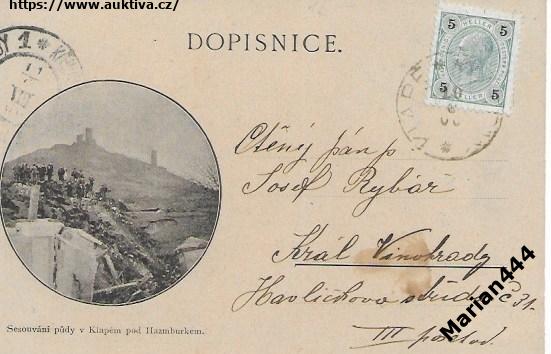 https://www.auktiva.cz/
DOPISNICE.
5 5
HELLER
5 5
1 *
11
III
Ctěný pán p
Josef Rybář
Král Vinohrady
Havlíčkova třída Č 31.
III poschod.
Sesouvání půdy v Klapém pod Hazmburkem.
Marian444